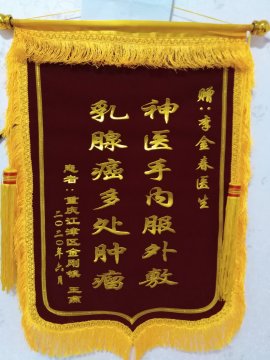 赠:李金春医生
神医手内服外敷
乳腺癌多处肿瘤
患者:重庆江津区金刚镇 王素
二〇二〇年六月